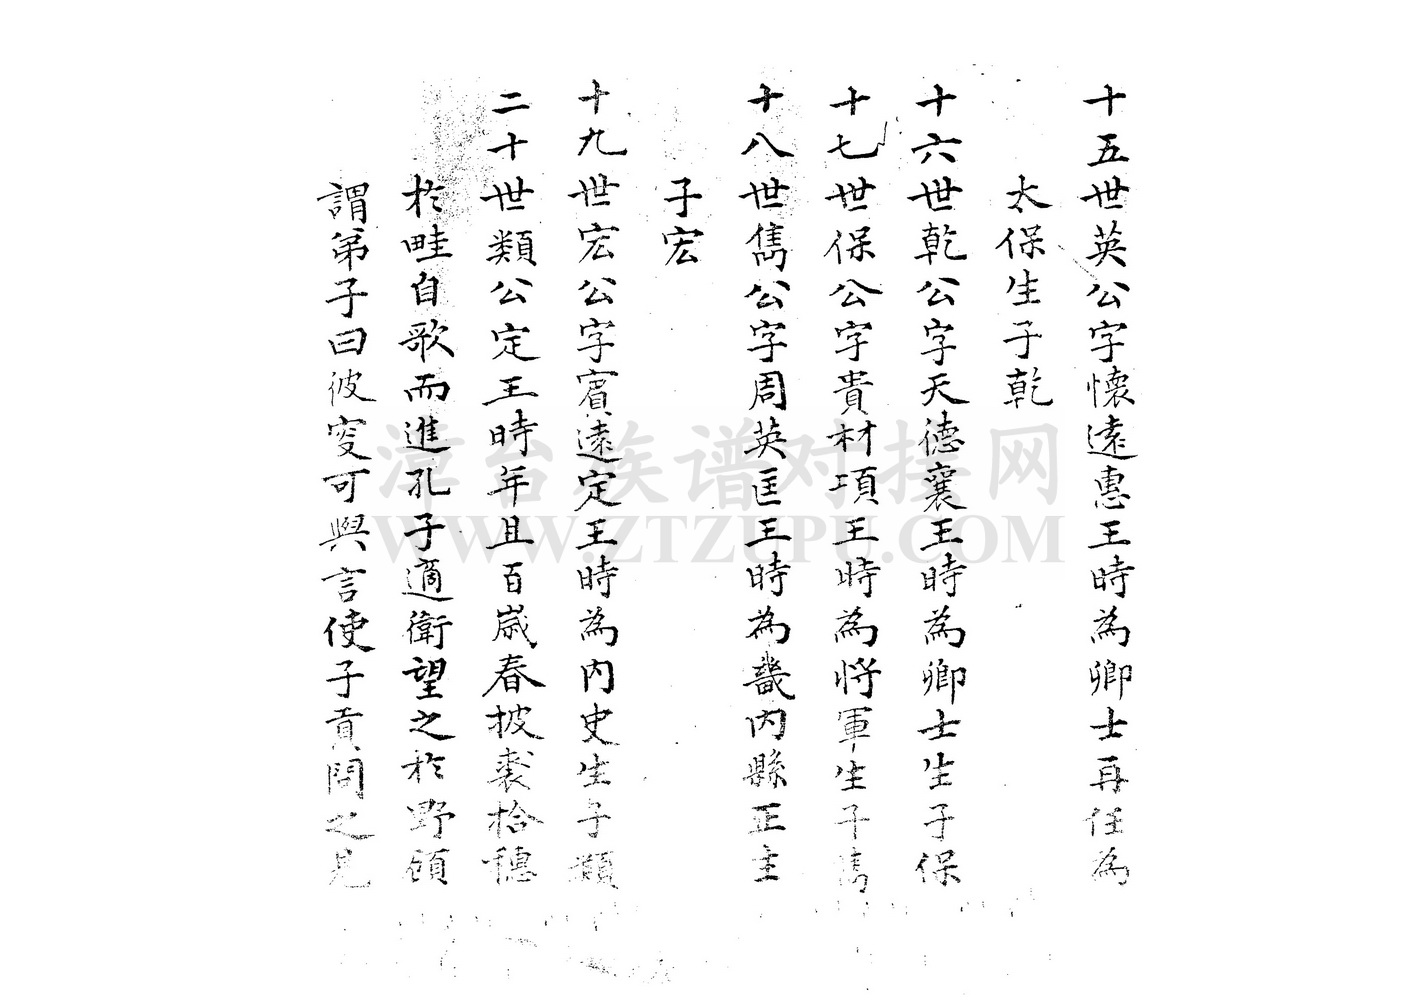 十五世英公字懷遠惠王時為卿士再任為
太保生子乾
十六世乾公字天德襄王時為卿士生子保
十七世保公字貴材項王時為將軍生子雋
十八世雋公字周英匡王時為畿内縣正生
子宏
十九世宏公字賓遠定王時為内史生子類
二十世類公定王時年且百歲春披裘拾穗
於畦自歌而進孔子適衛望之於野顧
謂弟子曰彼叟可與言使子貢問之見
漳台族谱对接网
WWW.ZTZUPU.COM